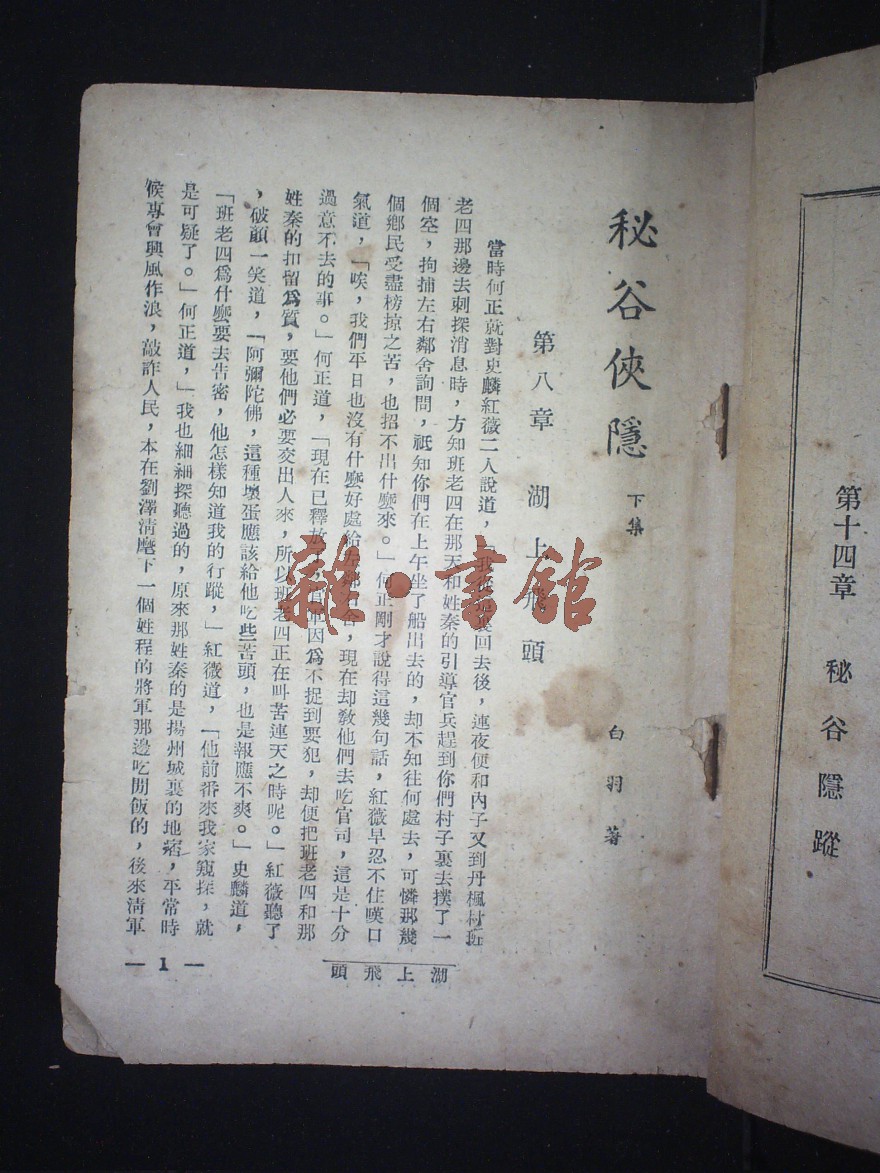 第十四章　秘谷隱蹤
秘谷俠隱　下集
白羽著
第八章　湖上飛頭
當時何正就對史麟紅薇二人說道，「我從這裏回去後，連夜便和內子又到丹楓村班
老四那邊去刺探消息時，方知班老四在那天和姓秦的引導官兵趕到你們村子裏去撲了一
個空，拘捕左右鄰舍詢問，祗知你們在上午坐了船出去的，却不知往何處去，可憐那幾
個鄉民受盡榜掠之苦，也招不出什麼來。」何正剛才說得這幾句話，紅薇早忍不住嘆口
氣道，「唉，我們平日也沒有什麼好處給，現在却敎他們去吃官司，這是十分
過意不去的事。」何正道，「現在已釋放了，軍因爲不捉到要犯，却便把班老四和那
姓秦的扣留爲質，要他們必要交出人來，所以班老四正在叫苦連天之時呢。」紅薇聽了
，破顏一笑道，「阿彌陀佛，這種壞蛋應該給他吃些苦頭，也是報應不爽。」史麟道，
「班老四爲什麼要去告密，他怎樣知道我的行蹤，」紅薇道，「他前番來我家窺探，就
是可疑了。」何正道，」我也細細探聽過的，原來那姓秦的是揚州城裏的地痞，平常時
候專會興風作浪，敲詐人民，本在劉澤淸麾下一個姓程的將軍那邊吃閒飯的，後來淸軍
湖上飛頭
— 1 —
雜·書館